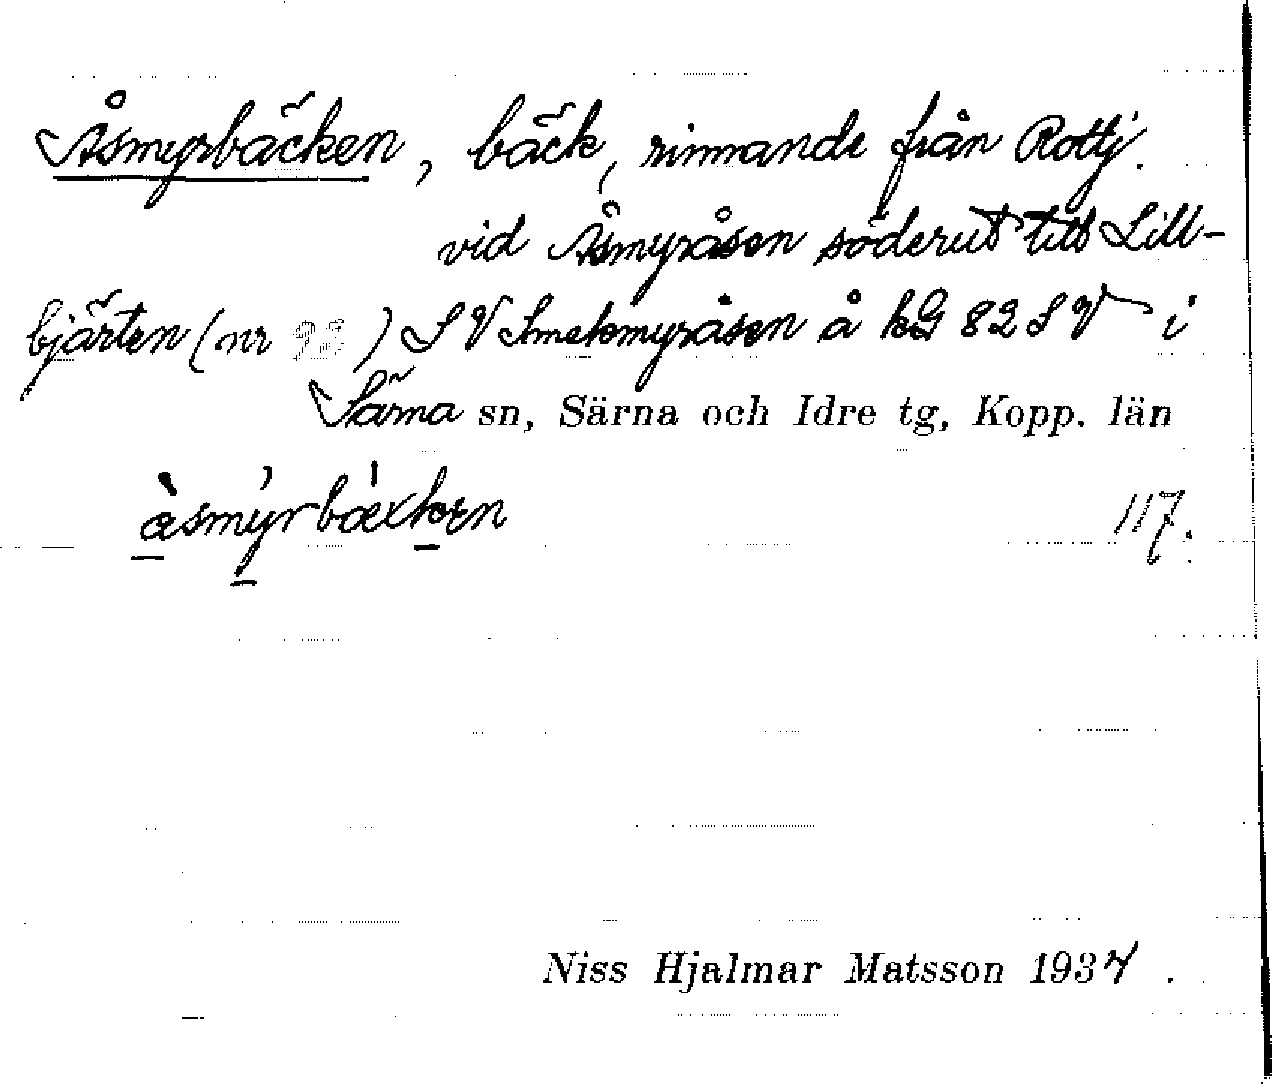 Åsmyrbäcken, bäck, rinnande från Rottj.
vid Åsmyråsen söderut till Lill-
bjärten (nr 93) SV Smetmyråsen å kG 82 SV i
Särna sn, Särna och Idre tg, Kopp. län
àsmýrbækken
117.
Niss Hjalmar Matsson 1937.